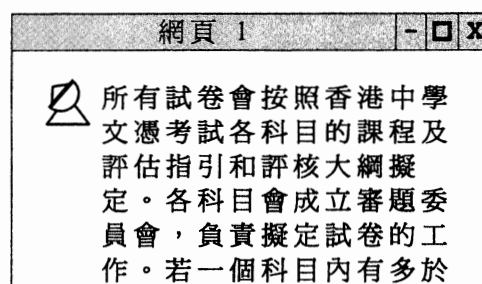 網頁 1
所有試卷會按照香港中學
文憑考試各科目的課程及
評估指引和評核大綱擬
定。各科目會成立審題委
員會，負責擬定試卷的工
作。若一個科目內有多於